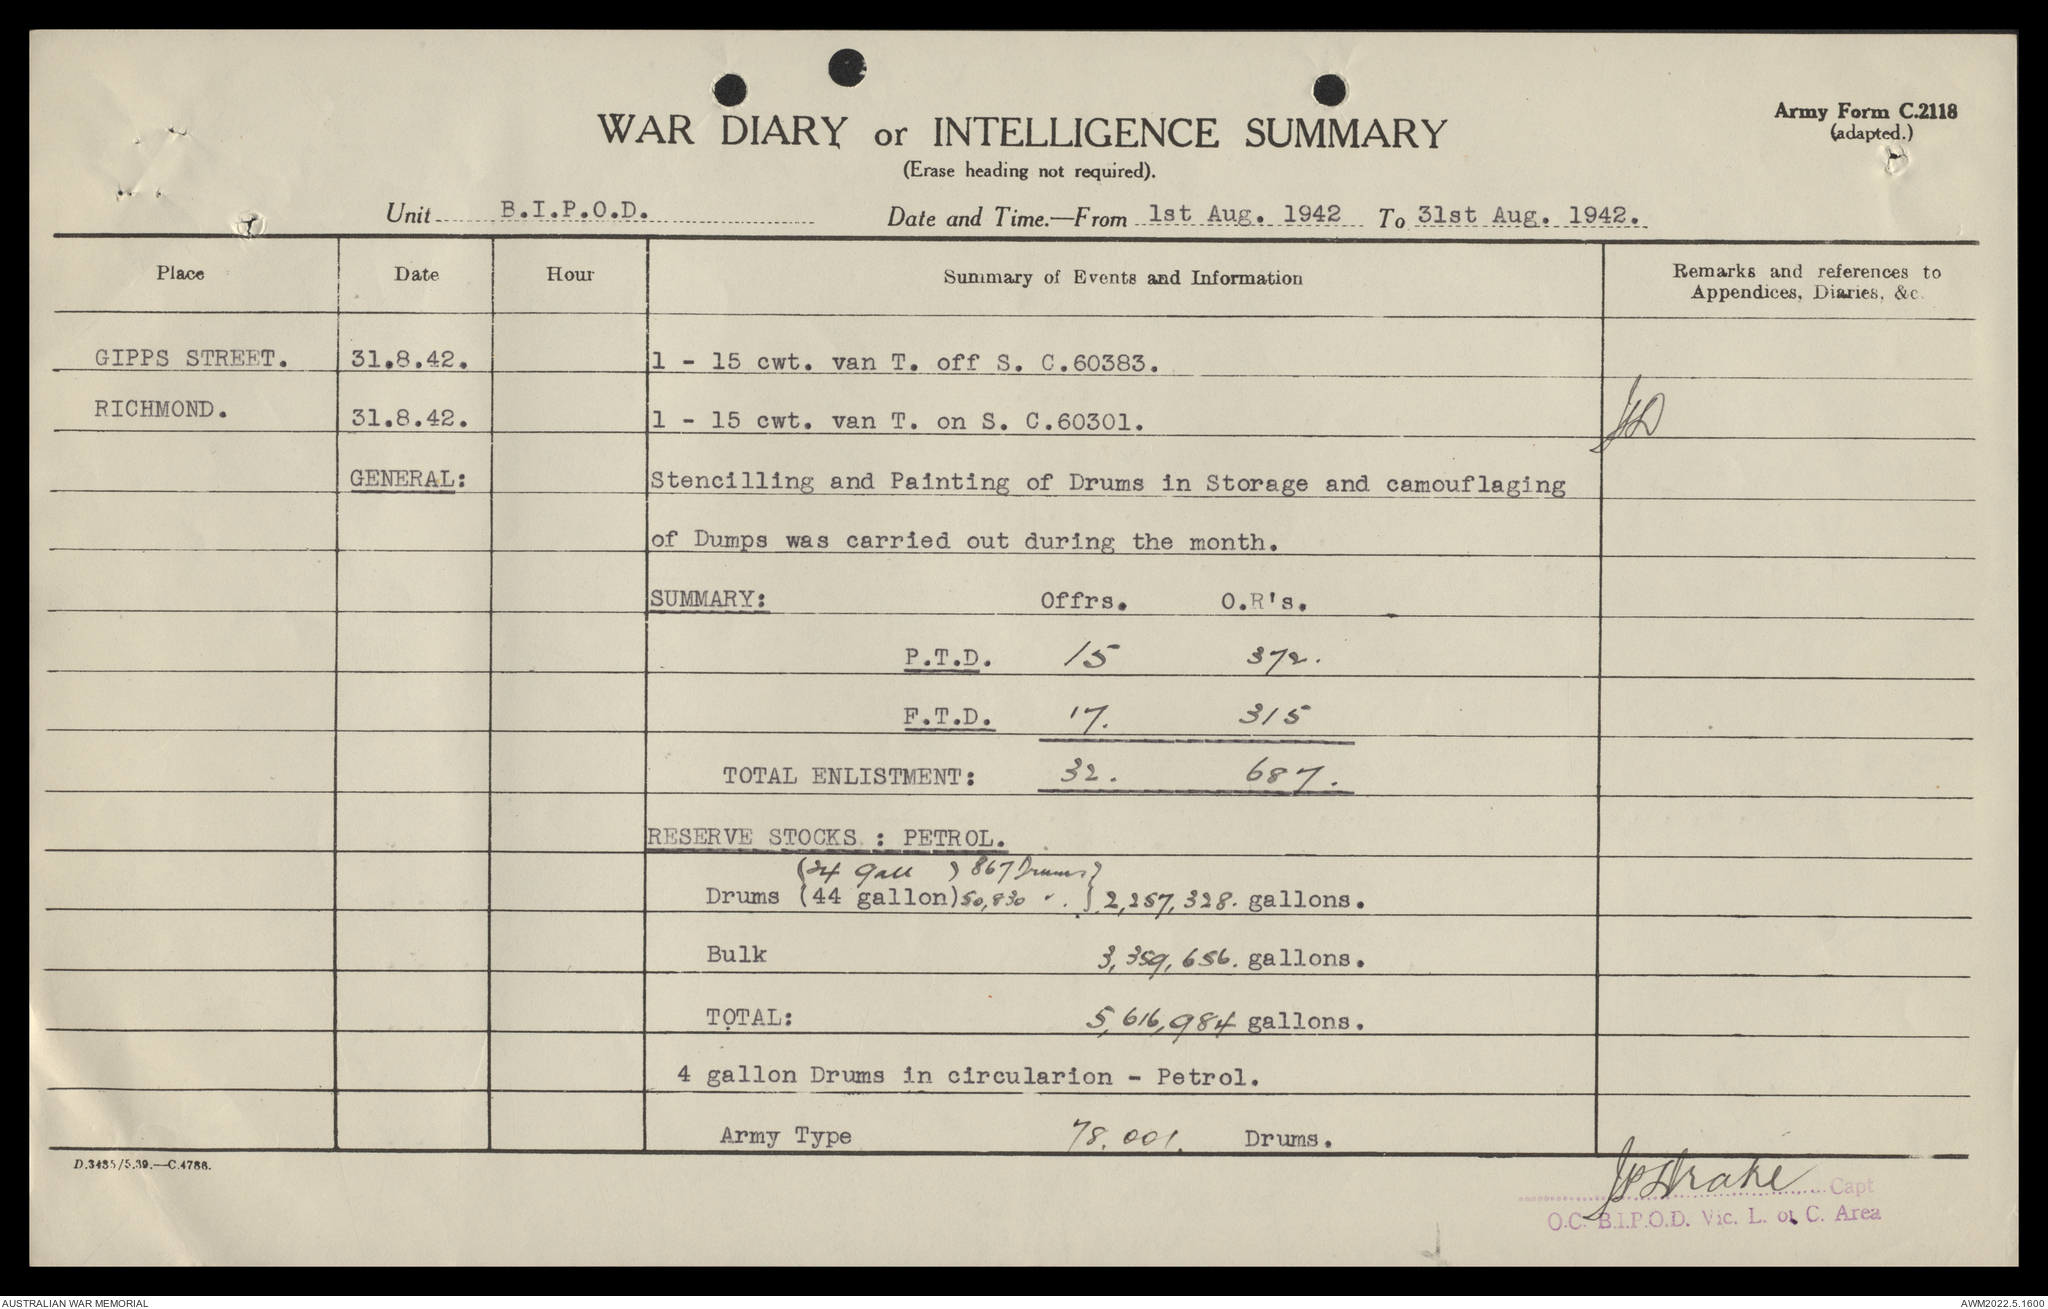 Army Form C.2118
(adapted.)
WAR DIARY or INTELLIGENCE SUMMARY
(Erase heading not required).
Unit B.I.P.O.D. Date and Time.—From 1st Aug. 1942 To 31st Aug. 1942.
Place Date Hour Summary of Events and Information Remarks and references to
Appendices, Diaries, &c.
GIPPS STREET. 31.8.42. 1 - 15 cwt. van T. off S. C.60383.
RICHMOND. 31.8.42. 1 - 15 cwt. van T. on S. C.60301. JPD
GENERAL: Stencilling and Painting of Drums in Storage and camouflaging
of Dumps was carried out during the month.
SUMMARY: Offrs. O.R's.
P.T.D. 15 372.
F.T.D. 17. 315
TOTAL ENLISTMENT: 32. 687.
RESERVE STOCKS : PETROL.
(24 gall ) 867 Drums}
Drums (44 gallon) 50,830 " . } 2,257,328. gallons.
Bulk 3,359,656. gallons.
TOTAL: 5,616,984 gallons.
4 gallon Drums in circularion - Petrol.
Army Type 78,001. Drums.
D.3435/5.39.—C.4788.
JP Drake Capt
O.C. B.I.P.O.D. Vic. L. of C. Area
AUSTRALIAN WAR MEMORIAL AWM2022.5.1600